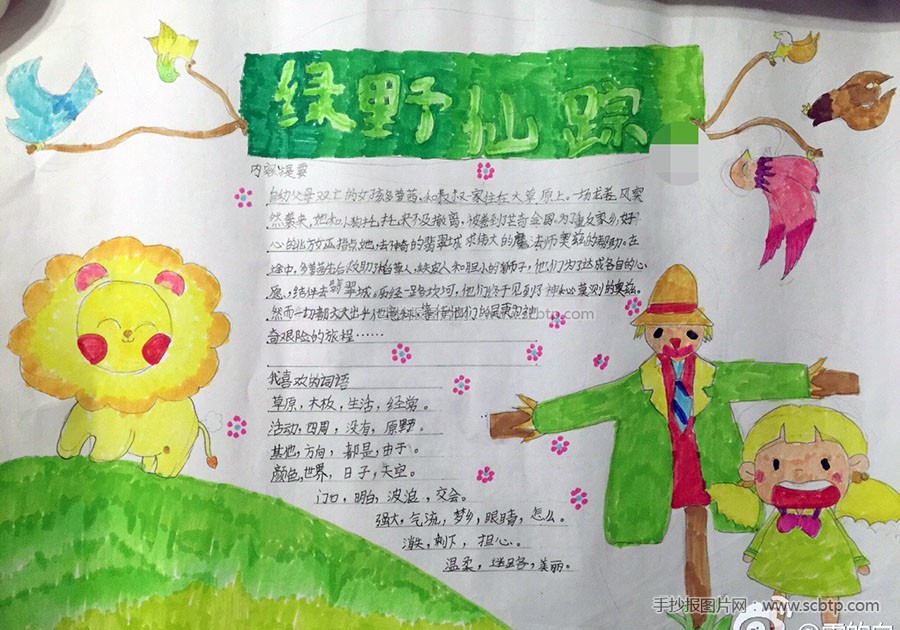 绿野仙踪
内容提要
自幼父母双亡的女孩多萝茜,和叔叔一家住在大草原上。一场龙卷风突
然袭来,她和小狗托托来不及撤离,被卷到芒奇金国。为重返家乡,好
心的北方女巫指点她,去神奇的翡翠城求伟大的魔法师奥兹的帮助。在
途中,多萝茜先后救助了稻草人、铁皮人和胆小的狮子,他们为了达成各自的心
愿,结伴去翡翠城。历经一路坎坷,他们终于见到了神秘莫测的奥兹。
然而一切都大大出乎他
奇艰险的旅程……
我喜欢的词语
草原,木板,生活,经常。
活动,四周,没有,原野。
其他,方向,都是,由于。
颜色,世界,日子,天空。
门口,明白,波浪,交会。
强大,气流,梦乡,眼睛,怎么。
消失,剩下,担心。
温柔,迷,美丽。
scbtp.com
手抄报图片网:www.scbtp.com